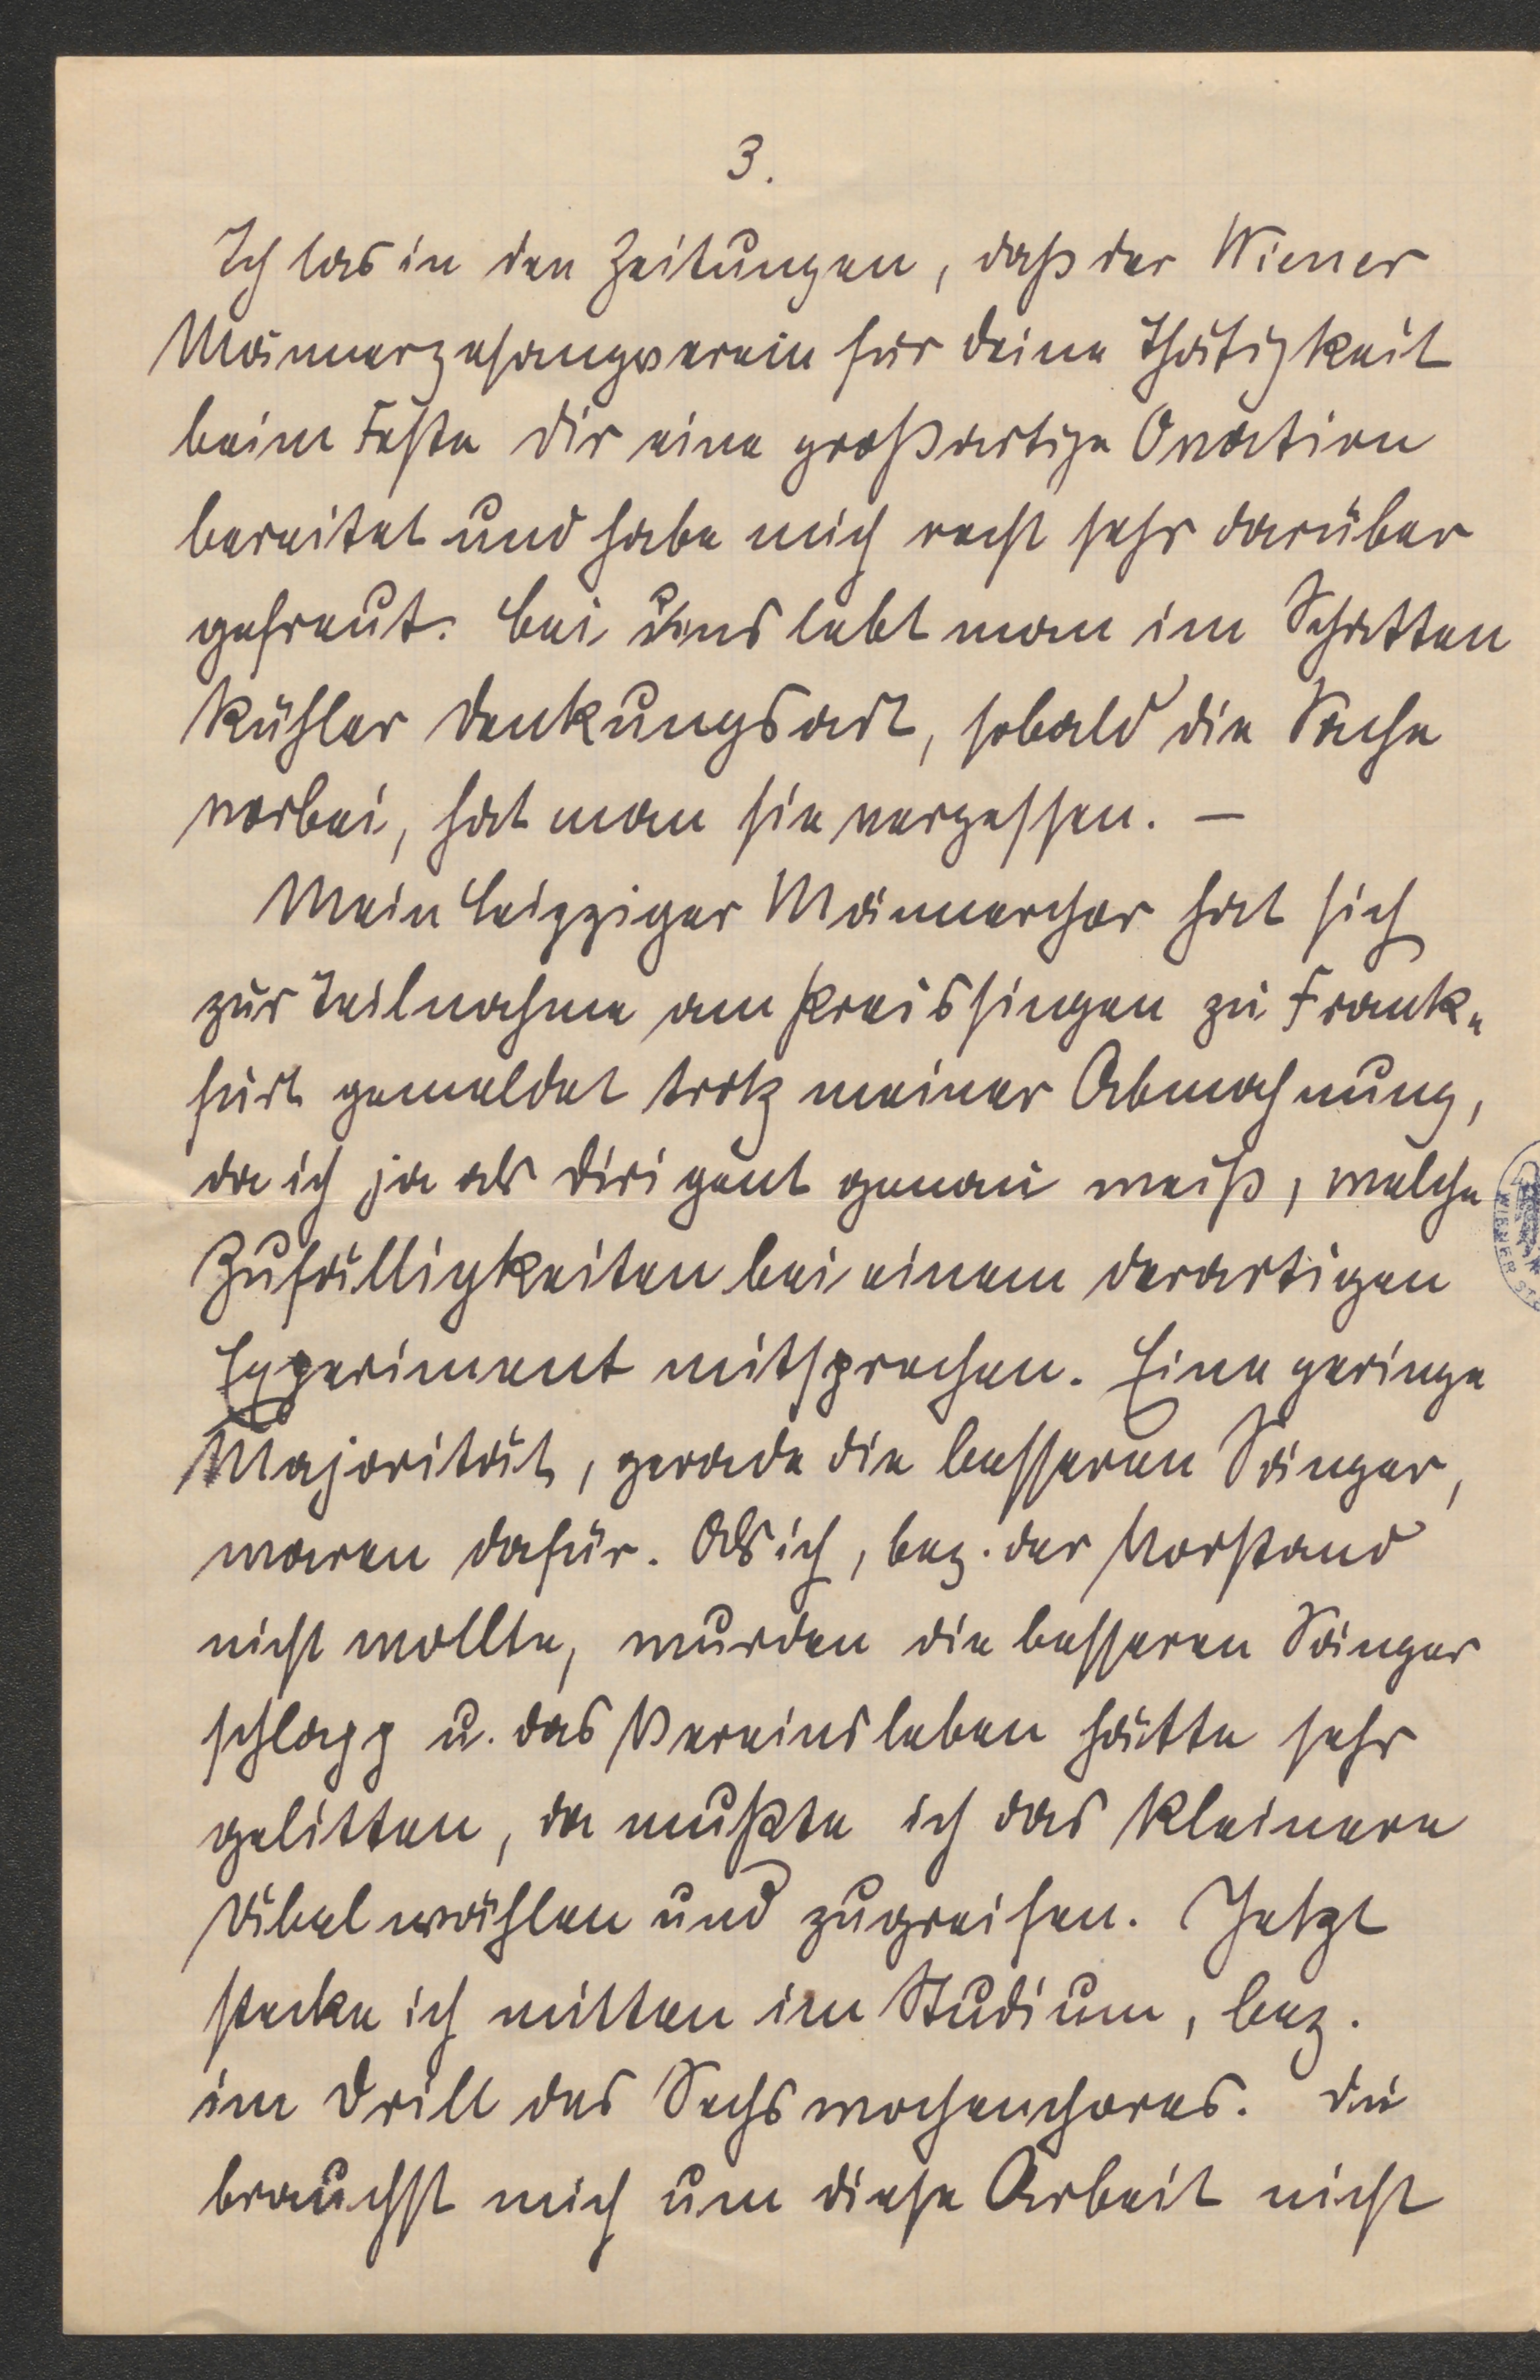 3.
Ich las in den Zeitungen, daß der Wiener
Männergesangverein für Deine Thätigkeit
beim Feste Dir eine großartige Ovation
bereitet und habe mich recht sehr darüber
gefreut. Bei uns lebt man im Schatten
kühler Denkungsart, sobald die Sache
vorbei, hat man sie vergessen. —
Mein Leipziger Männerchor hat sich
zur Teilnahme am Preissingen zu Frank„
furt gemeldet trotz meiner Abmahnung,
da ich ja als Dirigent genau weiß, welche
Zufälligkeiten bei einem derartigen
Experiment mitsprechen. Eine geringe
Majorität, gerade die besseren Sänger,
waren dafür. Als ich, bez. der Vorstand
nicht wollte, wurden die besseren Sänger
schlapp u. das Vereinsleben hätte sehr
gelitten, da mußte ich das kleinere
Übel wählen und zugreifen. Jetzt
stecke ich mitten im Studium, bez.
im Drill des Sechswochenchores. Du
brauchst mich um diese Arbeit nicht
WIENER ST